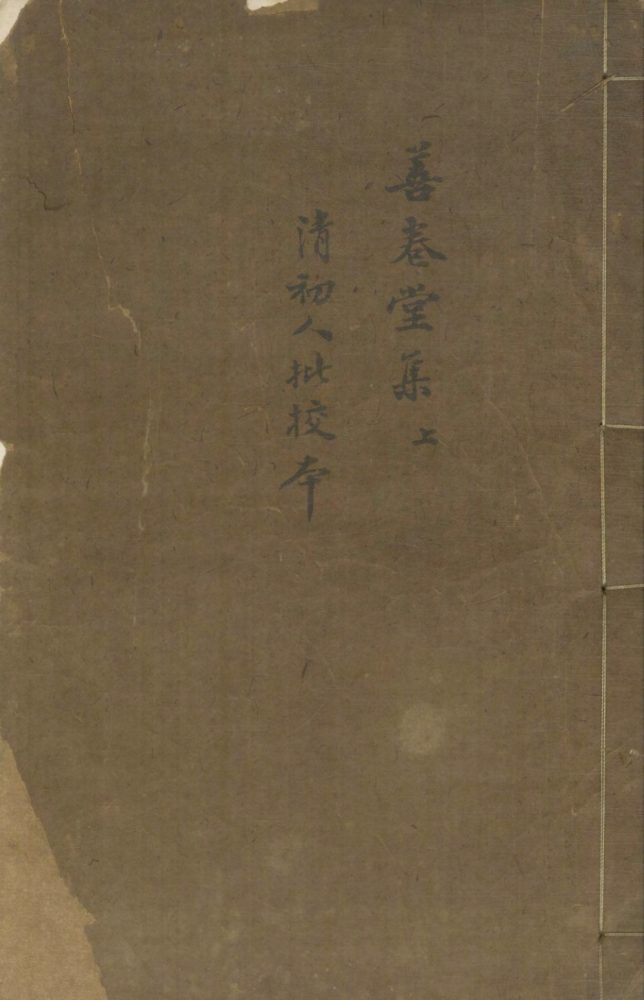 善卷堂集 上
清初人批校本